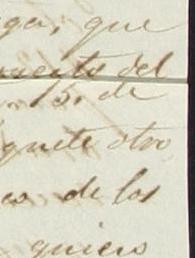 ga, que
mento del
15. de
quete otro
es de los
quiero